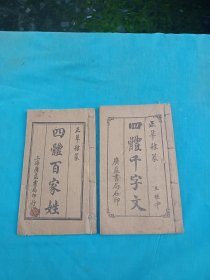 正草隸篆
四體百家姓
上海廣益書局印行
正草隸篆
四體千字文
廣益書局石印